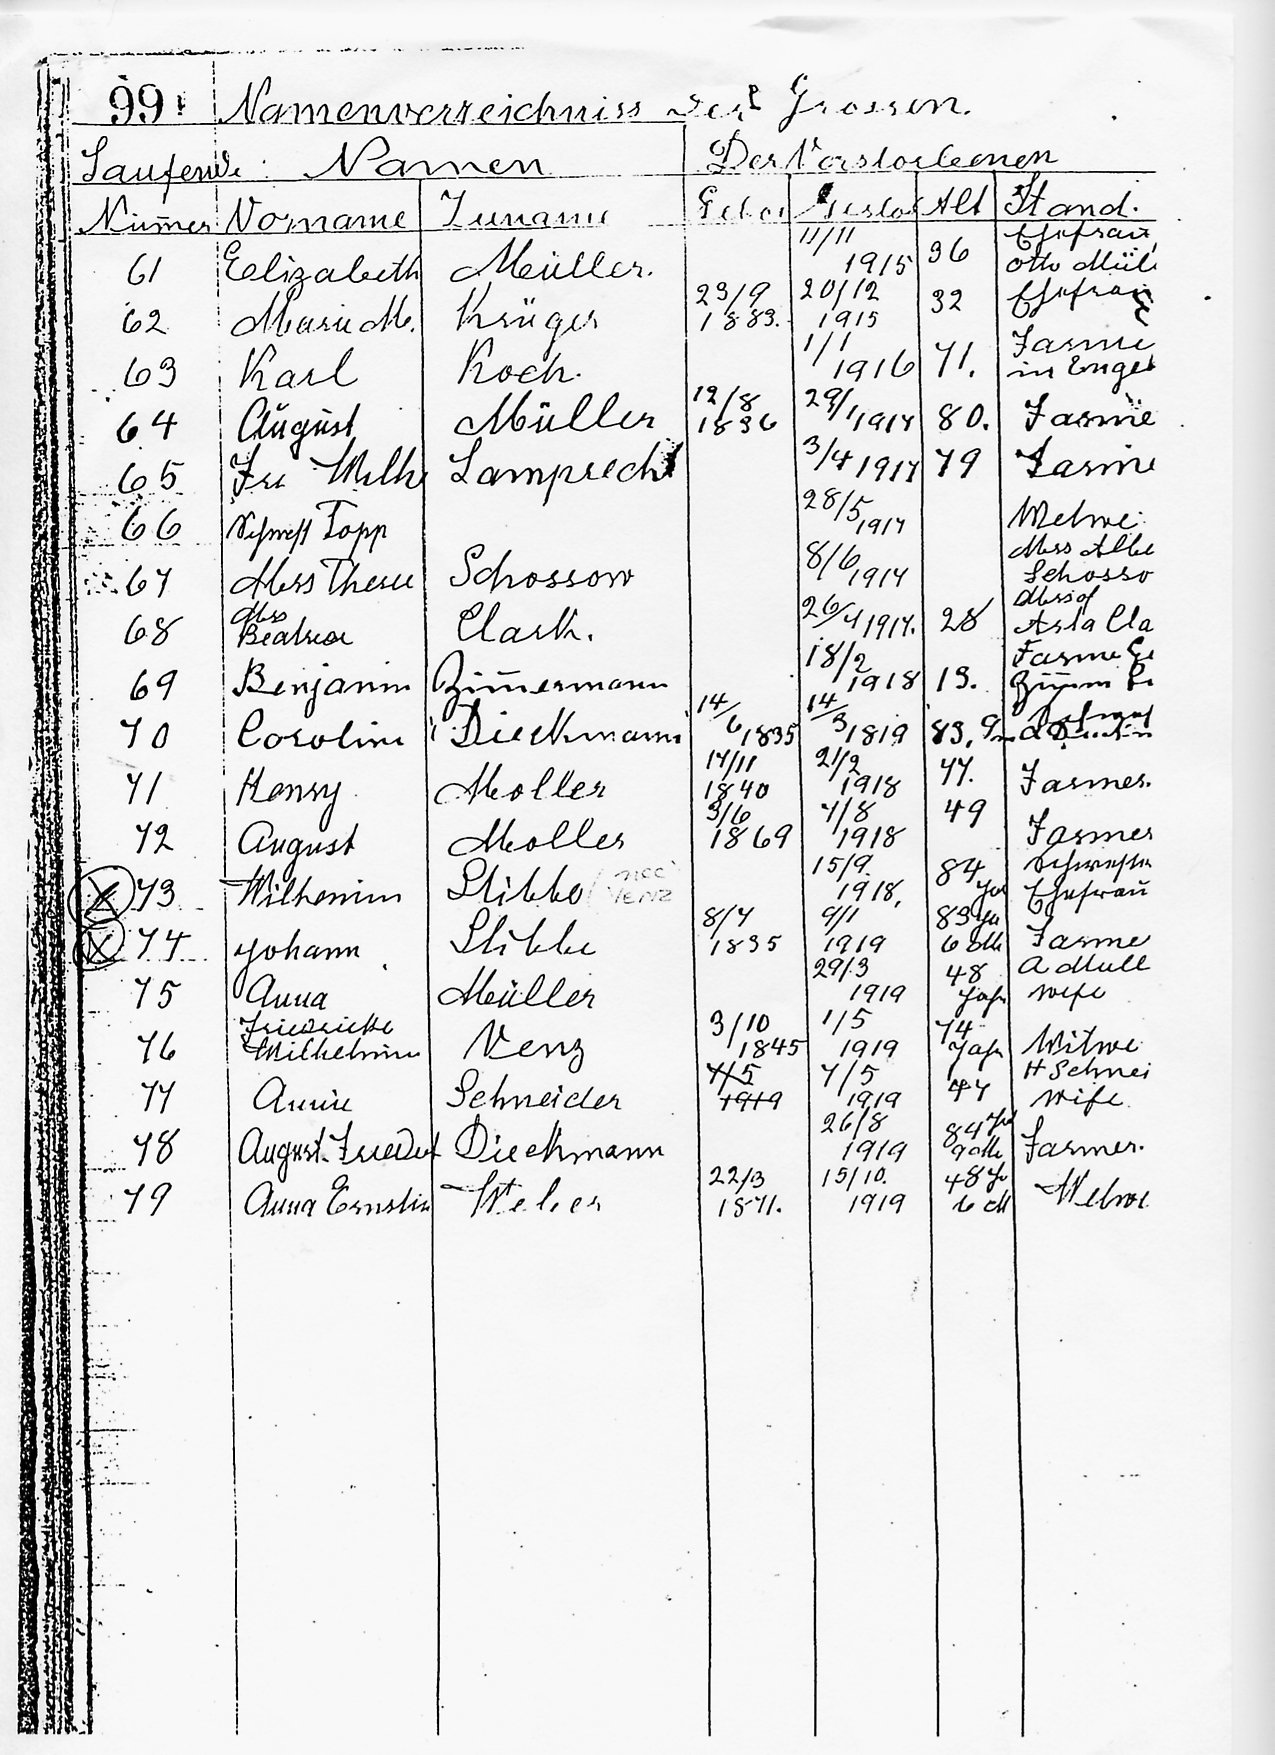 99. Namenverzeichniss der Grossen.
Laufende Namen Der Verstorbenen
Numer Vorname Zuname Gebor Gestor Alt Stand.
61 Elizabeth Müller. 11/11 1915 36 Ehefrau Otto Mül
62 Marie M. Krüger 23/9 1883. 20/12 1915 32 Ehefrau
63 Karl Koch. 1/1 1916 71. Farme in Enge
64 August Müller 12/8 1836 29/1 1917 80. Farme
65 Fri Wilh Lamprecht 3/4 1917 79 Farme
66 Schwest Topp 28/5 1917 Wetwe
67 Mrs Schossow 8/6 1917 Mrs Albe Schosso
68 Mrs Beatrice Clark. 26/4 1917. 28 Cla
69 Benjamin Zimmermann 18/2 1918 13. Farme
70 Carolin Dieckmann 14/6 1835 14/3 1819 83, 9m
71 Henry Moller 17/11 1840 21/2 1918 77. Farmer.
72 August Moller 3/6 1869 7/8 1918 49 Farmer
73 Wilhemin Stibbe (nee Venz 15/9. 1918, 84 Jar Schweste Ehefrau
74 Johann Stibbe 8/7 1835 9/1 1919 83 Ja 6 Mo Farme
75 Anna Müller 29/3 1919 48 Jahr A Mull wife
76 Friedricke Wilhelmine Venz 3/10 1845 1/5 1919 74 Jahr Witwe
77 Annie Schneider 7/5 1919 7/5 1919 47 H Schnei wife
78 August Friedr Dieckmann 26/8 1919 84 Ja 9 Mo Farmer.
79 Anna Ernstin Weber 22/3 1871. 15/10. 1919 48 Ja 6 M Wetwe